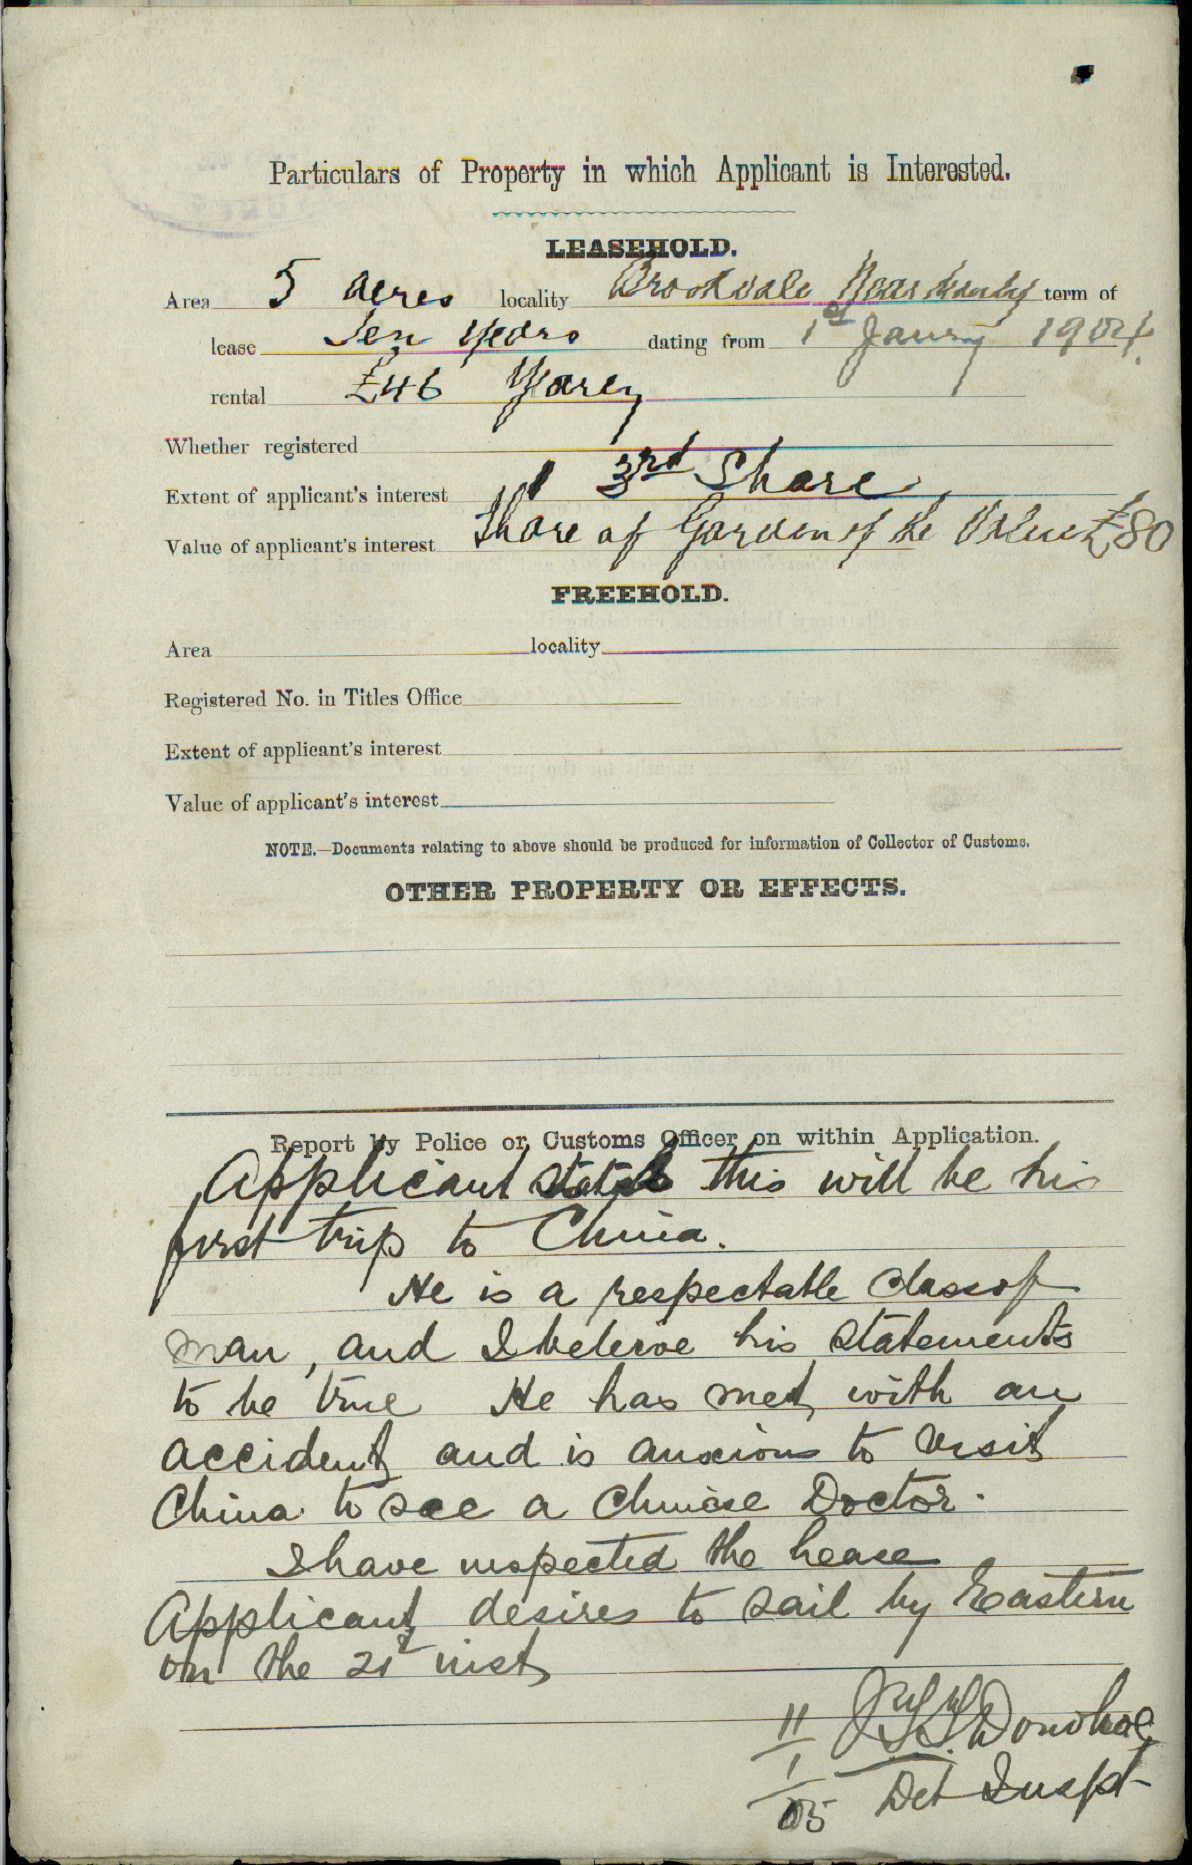 Particulars of Property in which Applicant is Interested.
LEASEHOLD.
Area 5 acres locality Brookvale Near Manly term of
lease Ten Years dating from 1st Janury 1904
rental £46 Yarey
Whether registered
Extent of applicant's interest 1 3rd Share
Value of applicant's interest Share of Garden of the Value £80
FREEHOLD.
Area locality
Registered No. in Titles Office
Extent of applicant's interest
Value of applicant's interest
NOTE.—Documents relating to above should be produced for information of Collector of Customs.
OTHER PROPERTY OR EFFECTS.
Report by Police or Customs Officer on within Application.
Applicant states this will be his
first trip to China.
He is a respectable class of
man, and I beleive his statements
to be true He has met with an
accident and is anxious to visit
China to see a Chinese Doctor.
I have inspected the lease
Applicant desires to sail by Eastern
on the 21st inst
11 Donohoe
1
05 Det Inspt